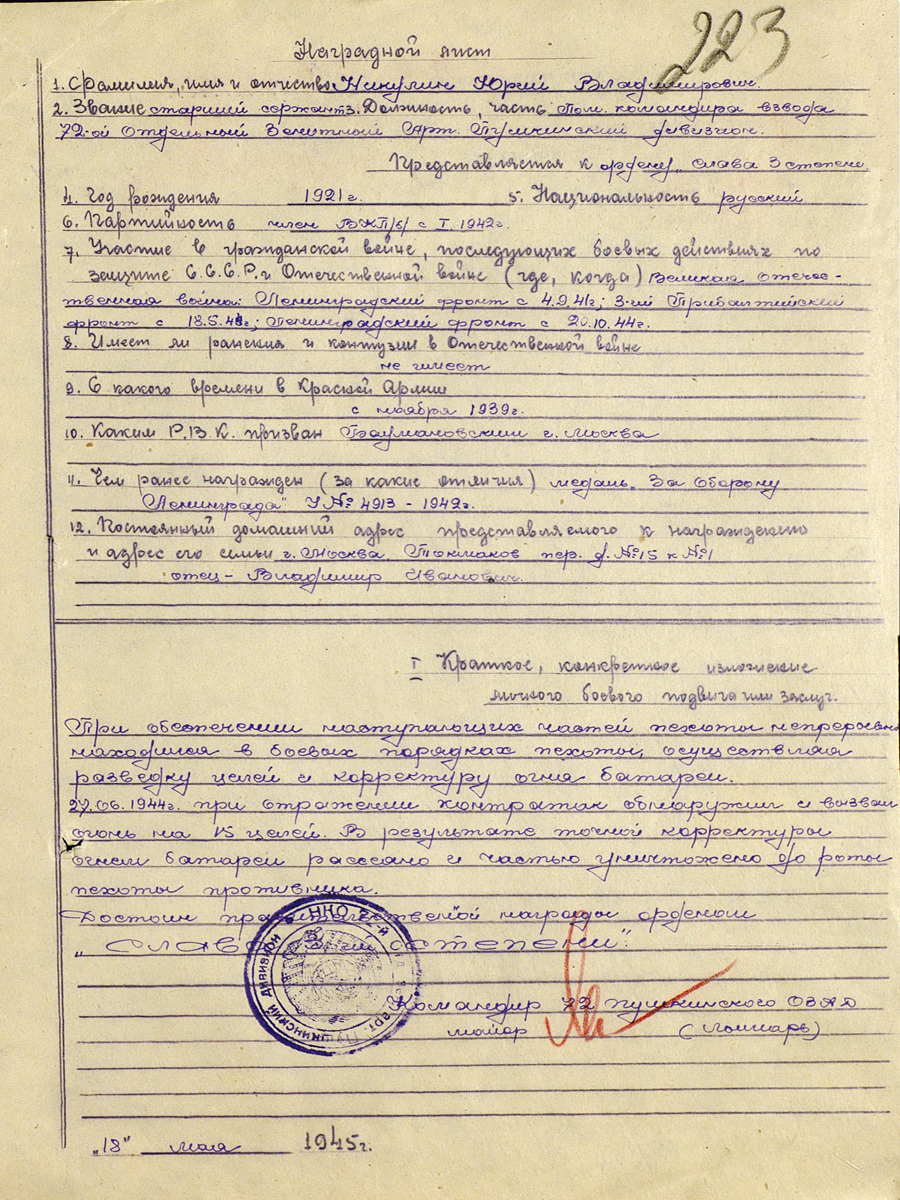 223
Наградной лист
1. Фамилия, имя и отчество Никулин Юрий Владимирович.
2. Звание старший сержант 3. Должность, часть Пом. командира взвода
72-ой Отдельный Зенитный Арт. Пушкинский дивизион.
Представляется к ордену „Слава 3 степени
4. Год рождения 1921г. 5. Национальность русский
6. Партийность член ВКП/б/ с I. 1942г.
7. Участие в гражданской войне, последующих боевых действиях по
защите С.С.С.Р. и Отечественной войне (где, когда) Великая отече-
ственная война: Ленинградский фронт с 4.9.41г; 3-ий Прибалтийский
фронт с 18.5.44г; Ленинградский фронт с 20.10.44г.
8. Имеет ли ранения и контузии в Отечественной войне
не имеет
9. С какого времени в Красной Армии
с ноября 1939г.
10. Каким Р.В.К. призван Баумановским г. Москва
11. Чем ранее награжден (за какие отличия) медаль „За Оборону
Ленинграда" У№ 4913 - 1942г.
12. Постоянный домашний адрес представляемого к награждению
и адрес его семьи г. Москва, Токмаков пер. д. №15 к №1
отец - Владимир Иванович.
I Краткое, конкретное изложение
личного боевого подвига или заслуг.
При обеспечении наступающих частей пехоты непрерывно
находился в боевых порядках пехоты, осуществляя
разведку целей и корректуру огня батареи.
27.06.1944г. при отражении контратак обнаружил и вызвал
огонь на 15 целей. В результате точной корректуры
огнем батареи рассеяно и частью уничтожено до роты
пехоты противника.
Достоин правительственной награды орденом
„Слава 3-ей степени".
НКО
Арт. Пушкинский дивизион
Командир 72 Пушкинского ОЗАД
майор (Лоинарь)
„18" мая 1945г.